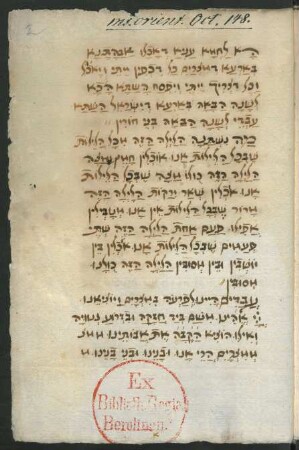 ms. orient. Oct. 148.
הא לחמא עניא דאכלו אבהתנא
בארעא דמצרים כל דכפין ייתי וייכל
וכל דצריך ייתי ויפסח השתא הכא
לשנה הבאה בארעא דישראל השתא
עבדי לשנה הבאה בני חורין
מה נשתנה הלילה הזה מכל הלילות
שבכל הלילות אנו אוכלין חמץ ומצה
הלילה הזה כולו מצה שבכל הלילות
אנו אוכלין שאר ירקות הלילה הזה
מרור שבכל הלילות אין אנו מטבילין
אפילו פעם אחת הלילה הזה שתי
פעמים שבכל הלילות אנו אוכלין בין
יושבין ובין מסובין הלילה הזה כולנו
מסובין
עבדים היינו לפרעה במצרים ויוציאנו
יי אלהינו משם ביד חזקה ובזרוע נטויה
ואילו הוציא הקבה את אבותינו
ממצרים הרי אנו ובנינו ובני בנינו
Ex
Biblioth. Regia
Berolinen.